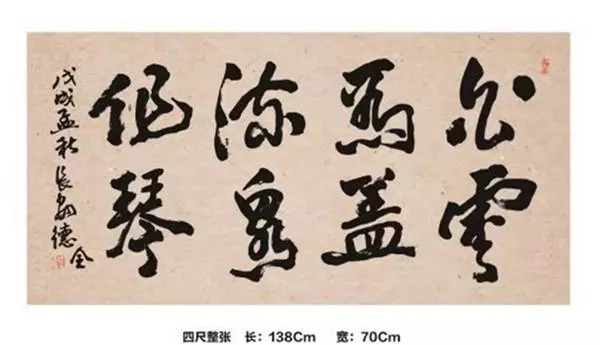 白雲
為蓋
流泉
作琴
戊戌孟秋張德全
四尺整张 长：138Cm 宽：70Cm